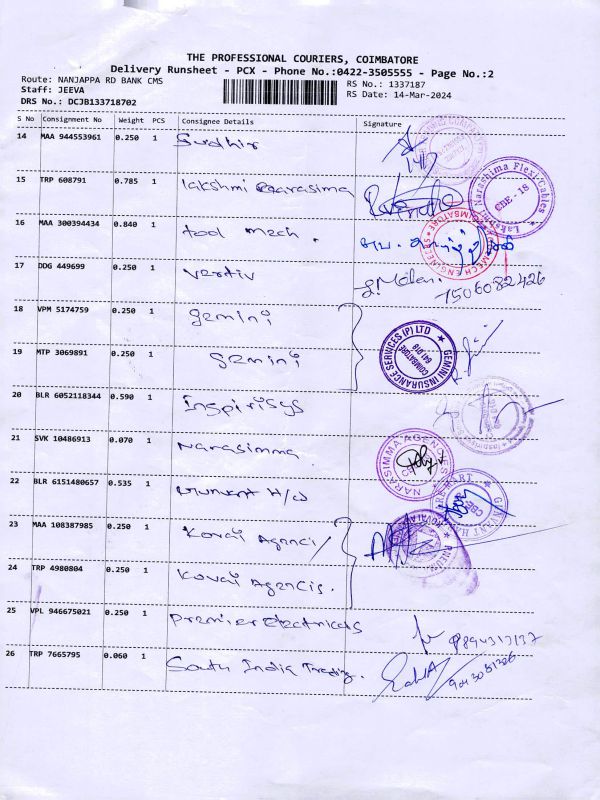 THE PROFESSIONAL COURIERS, COIMBATORE
Delivery Runsheet - PCX - Phone No.:0422-3505555 - Page No.:2
Route: NANJAPPA RD BANK CMS
RS No.: 1337187
Staff: JEEVA
RS Date: 14-Mar-2024
DRS No.: DCJB133718702
S No Consignment No Weight PCS Consignee Details Signature
14 MAA 944553961 0.250 1 Sudhir
15 TRP 608791 0.785 1 lakshmi Narasima
Lakshmi Narashima Flexi Cables
CBE-18
16 MAA 300394434 0.840 1 tool mech.
MECH ENGINEERS COIMBATORE
17 DDG 449699 0.250 1 vertiv
7506082426
18 VPM 5174759 0.250 1 gemini
GEMINI INSURANCE SERVICES (P) LTD
COIMBATORE
641 018
19 MTP 3069891 0.250 1 gemini
20 BLR 6052118344 0.590 1 Inspirisys
21 SVK 10486913 0.070 1 Narasimma
NARASIMMA AGENCIES
22 BLR 6151480657 0.535 1 H/W
CBE
23 MAA 108387985 0.250 1 Kovai Agenci
24 TRP 4980804 0.250 1 Kovai Agencis.
25 VPL 946675021 0.250 1 Premier Electricals
26 TRP 7665795 0.060 1 South India Trading.